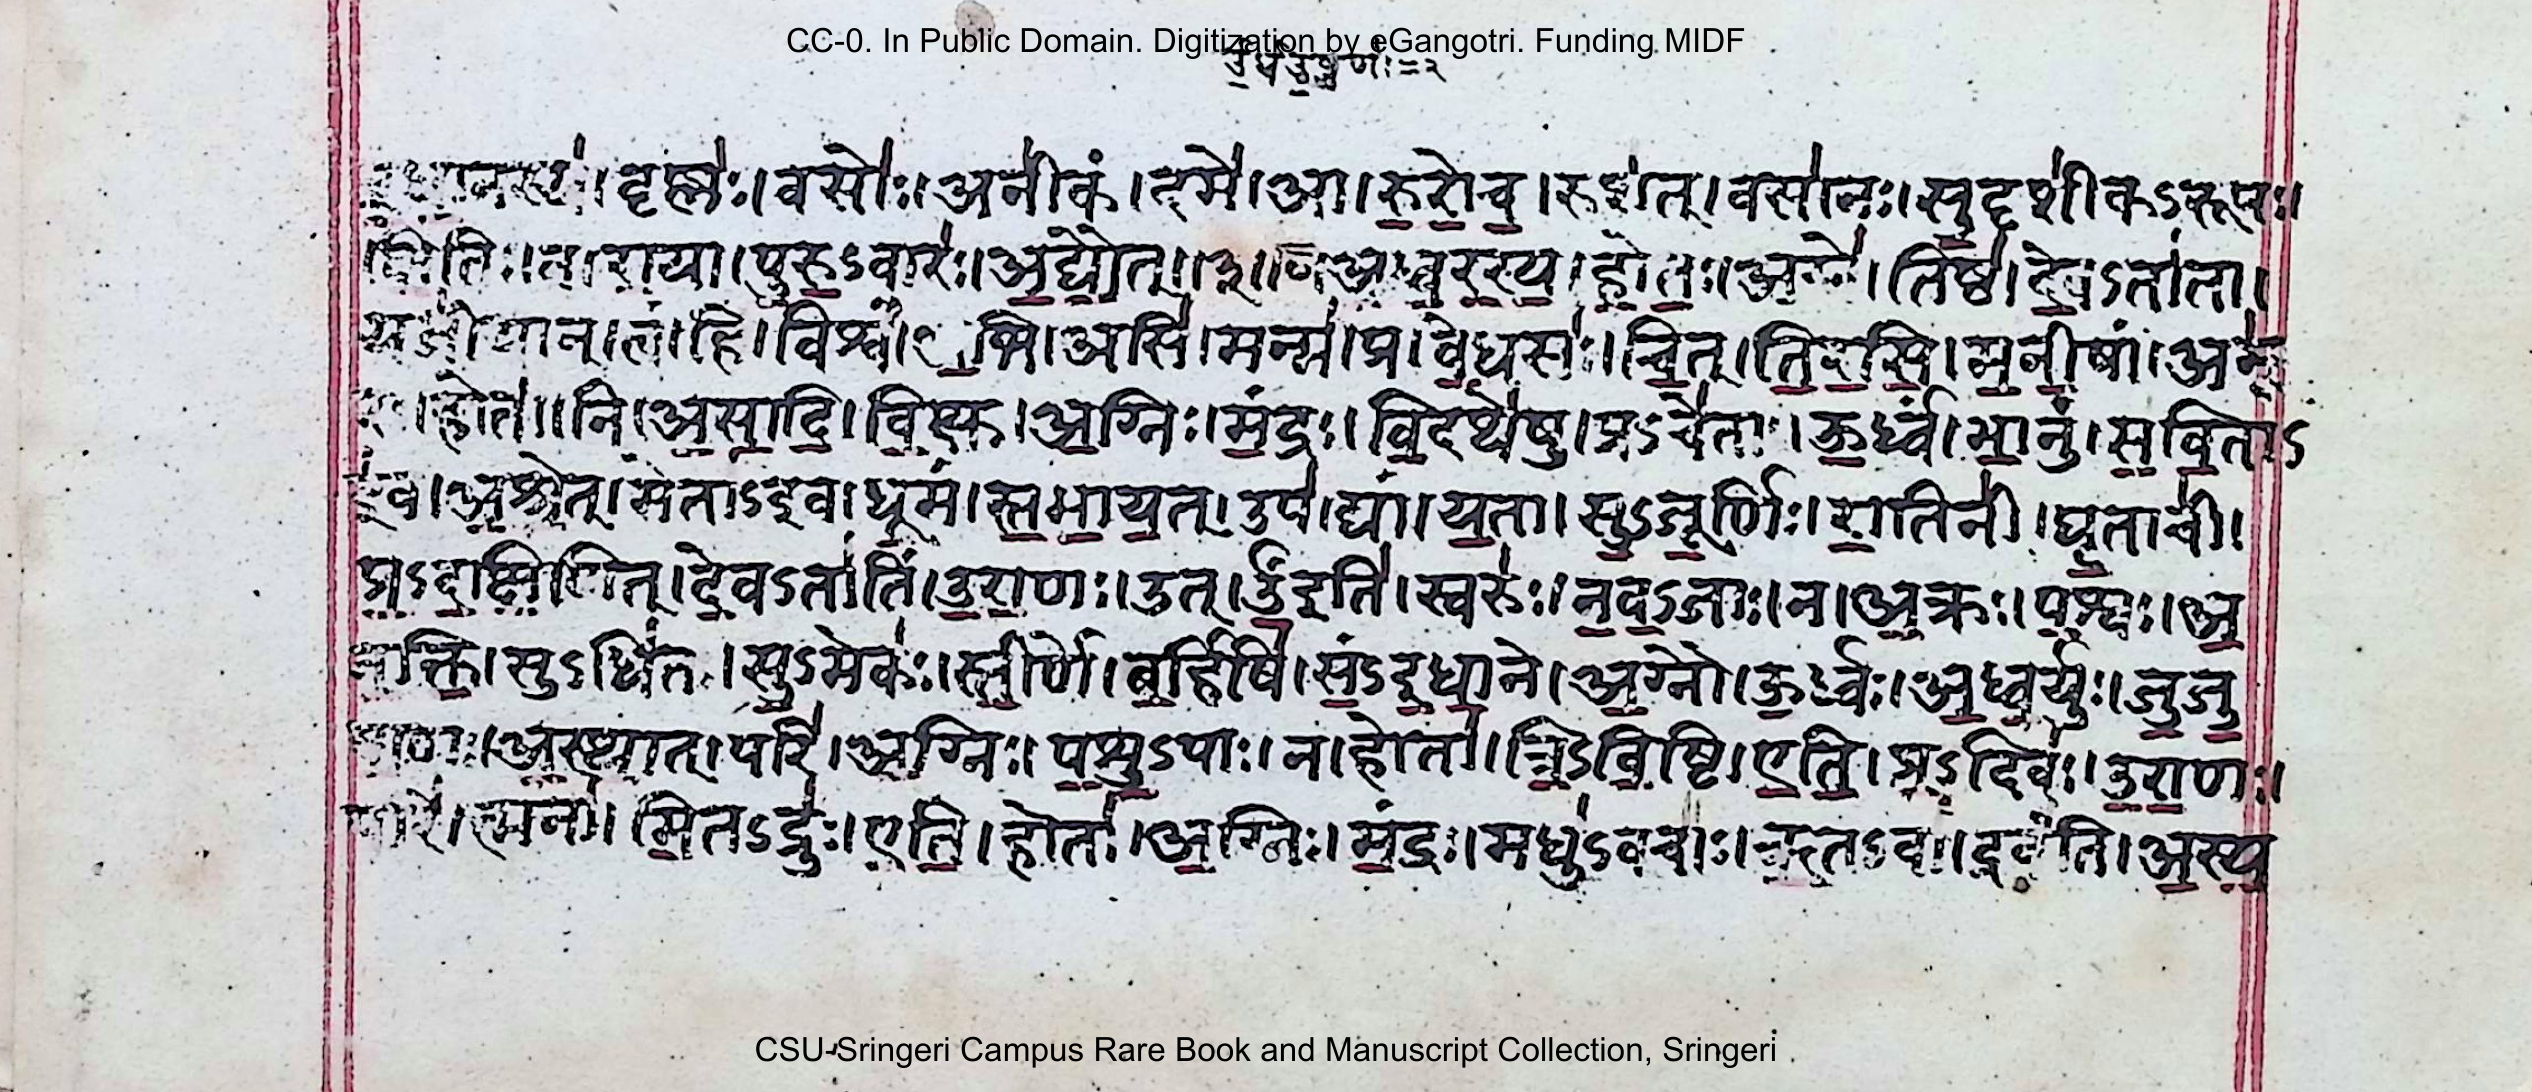 CC-0. In Public Domain. Digitization by eGangotri. Funding MIDF
वृष्णः । वसोः । अनीकं । दमे । आ । रुरोच । रुशत् । वसानः । सुदृशीकऽरूपः ।
क्षितिः । न । राया । पुरुऽवारः । अद्यौत् ॥ अध्वरस्य । होतः । अग्ने । तिष्ठ । देवऽताता ।
यजीयान् । त्वं । हि । विश्वं । अभि । असि । मन्म । प्र । वेधसः । चित् । तिरसि । मनीषां ।
होता । नि । असादि । विक्षु । अग्निः । मंद्रः । विदथेषु । प्रऽचेताः । ऊर्ध्वं । भानुं । सविताऽ
इव । अश्रेत् । मेताऽइव । धूमं । स्तभायत् । उप । द्यां । यता । सुऽजूर्णिः । रातिनी । घृताची ।
प्रऽदक्षिणित् । देवऽतातिं । उराणः । उत् । ऊँइति । स्वरुः । नवऽजाः । न । अक्रः । पश्वः । अ
नक्ति । सुऽधितः । सुऽमेकः । स्तीर्णे । बर्हिषि । संऽइधाने । अग्नौ । ऊर्ध्वः । अध्वर्युः । जुजु
षाणः । अस्थात् । परि । अग्निः । पशुऽपाः । न । होता । त्रिऽविष्टि । एति । प्रऽदिवः । उराणः ।
परि । त्मना । मितऽद्रुः । एति । होता । अग्निः । मंद्रः । मधुऽवचाः । ऋतऽवा । द्रवंति । अस्य
CSU-Sringeri Campus Rare Book and Manuscript Collection, Sringeri